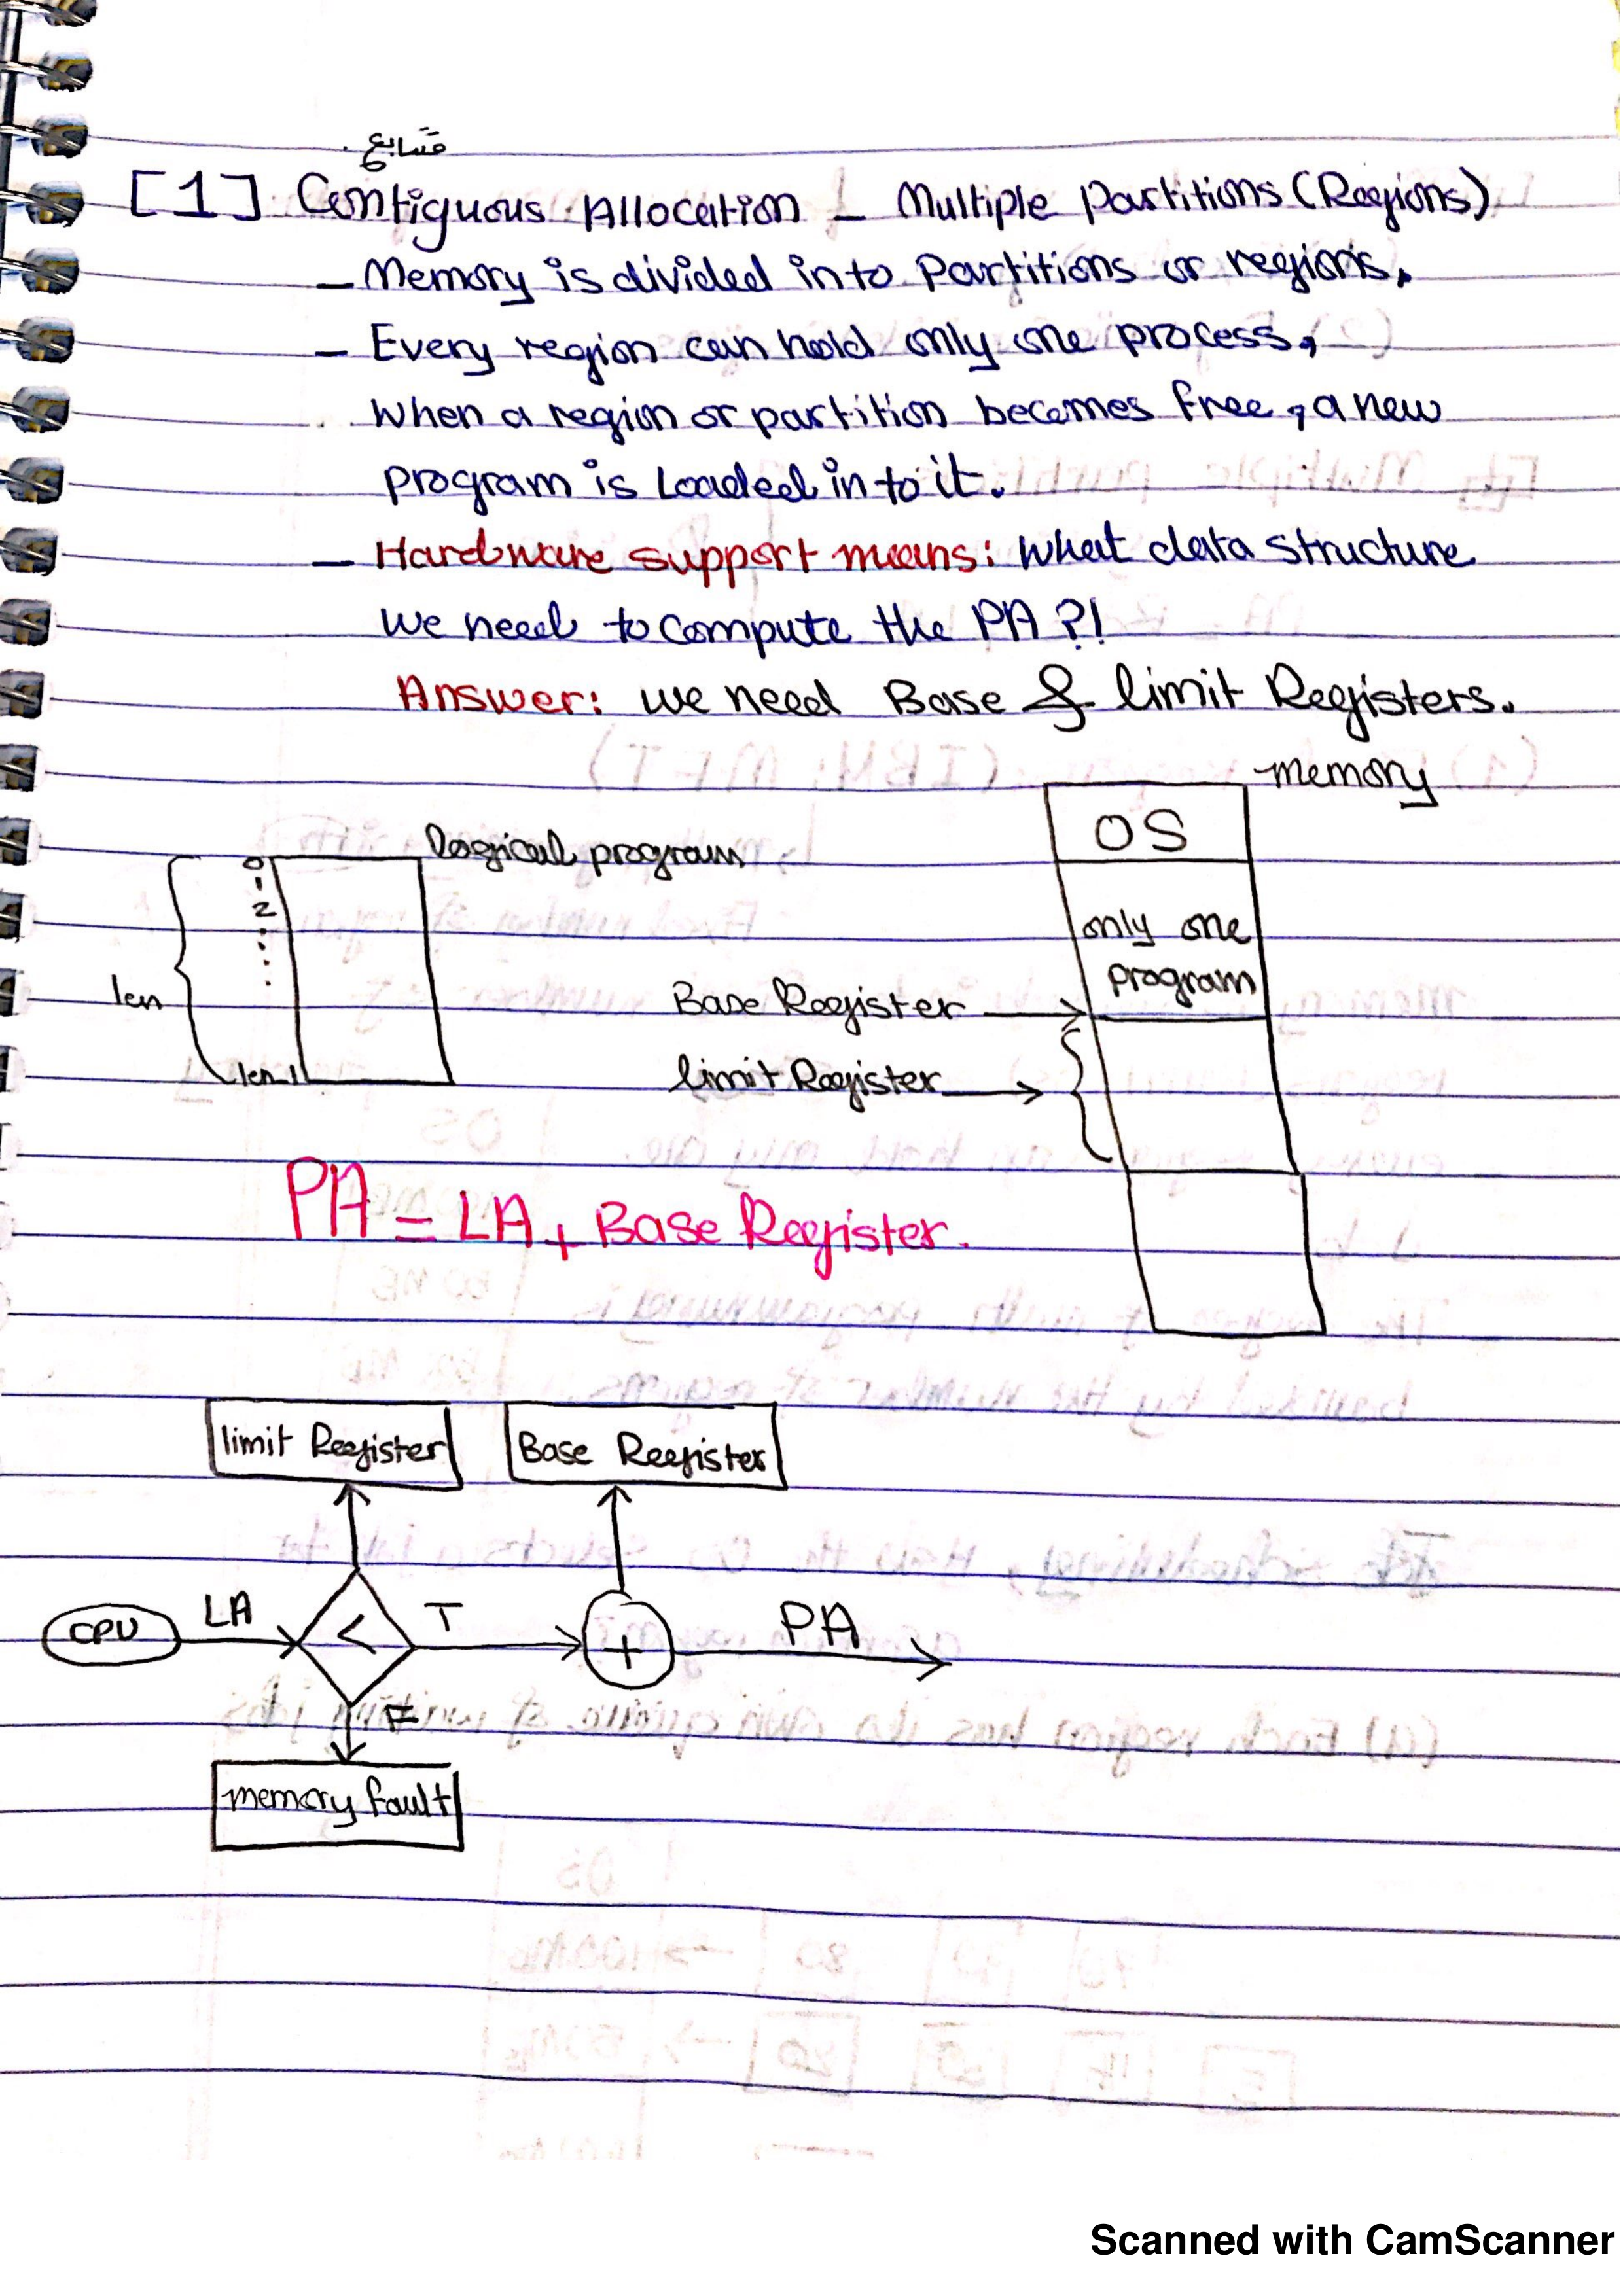 متتابع
[1] Contiguous Allocation – Multiple Partitions (Regions)
– Memory is divided into Partitions or regions.
– Every region can hold only one process,
When a region or partition becomes free, a new
program is Loaded into it.
– Hardware support means: What data structure
We need to compute the PA ?!
Answer: we need Base & limit Registers.
memory
OS
logical program
0
1
2
only one
program
len
Base Register
len-1
limit Register
PA = LA + Base Register.
limit Register
Base Register
CPU
LA
<
T
+
PA
F
memory fault
Scanned with CamScanner